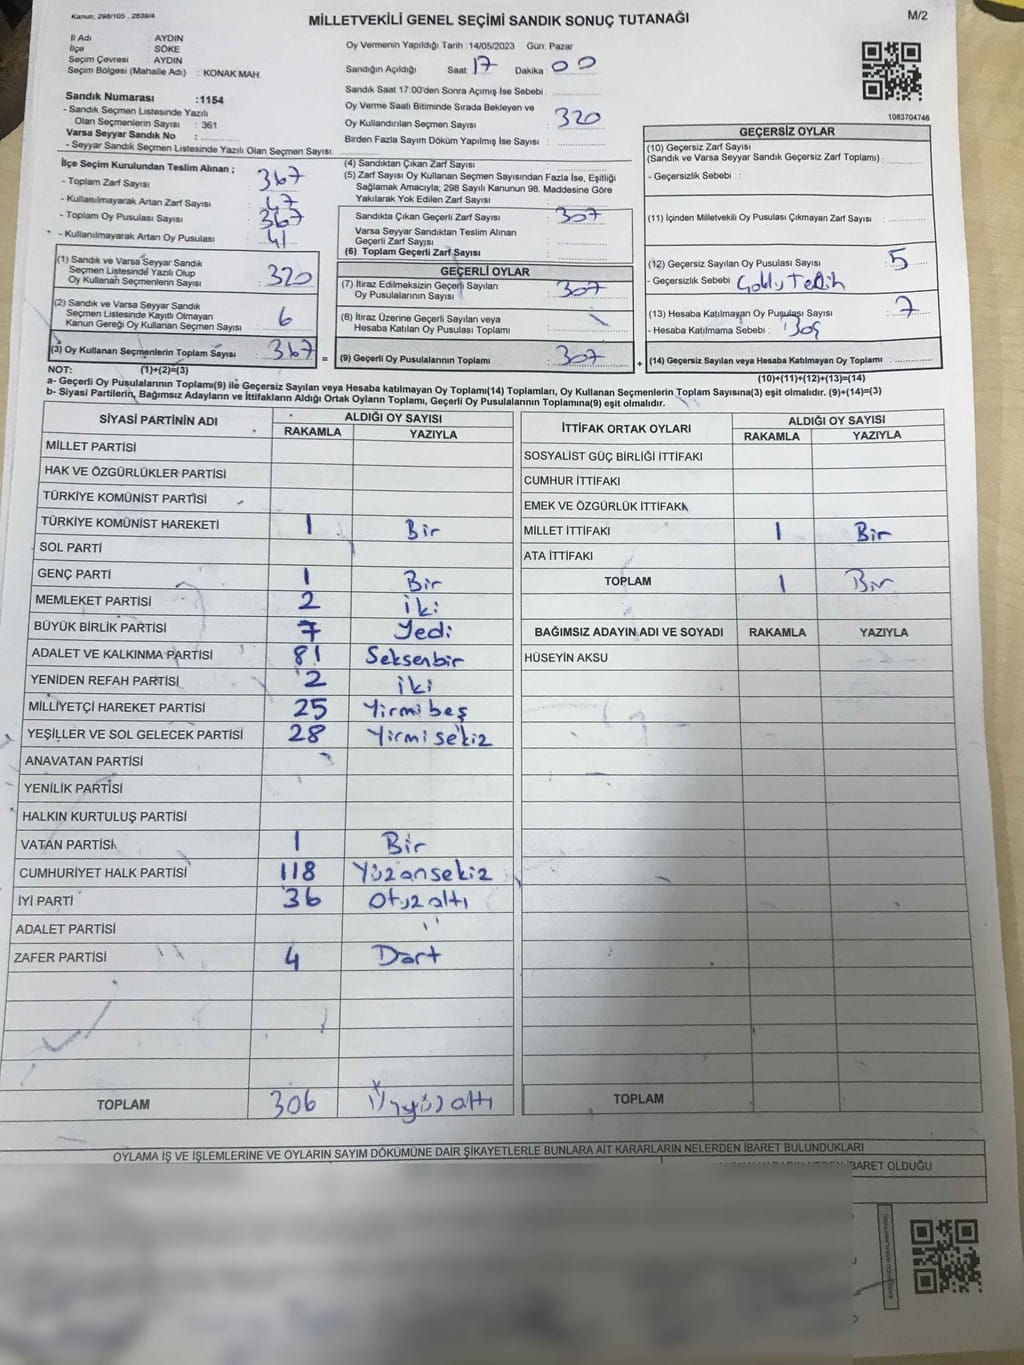 Kanun; 298/105 , 2839/4
MİLLETVEKİLİ GENEL SEÇİMİ SANDIK SONUÇ TUTANAĞI
M/2
İl Adı : AYDIN
İlçe : SÖKE
Seçim Çevresi : AYDIN
Seçim Bölgesi (Mahalle Adı) : KONAK MAH.
Sandık Numarası :1154
- Sandık Seçmen Listesinde Yazılı
Olan Seçmenlerin Sayısı : 361
Varsa Seyyar Sandık No :
- Seyyar Sandık Seçmen Listesinde Yazılı Olan Seçmen Sayısı:
Oy Vermenin Yapıldığı Tarih : 14/05/2023 Gün: Pazar
Sandığın Açıldığı Saat : 17 Dakika : 00
Sandık Saat 17:00'den Sonra Açımış İse Sebebi :
Oy Verme Saati Bitiminde Sırada Bekleyen ve
Oy Kullandırılan Seçmen Sayısı : 320
Birden Fazla Sayım Döküm Yapılmış İse Sayısı :
1083704746
İlçe Seçim Kurulundan Teslim Alınan ;
- Toplam Zarf Sayısı : 367
- Kullanılmayarak Artan Zarf Sayısı : 47
- Toplam Oy Pusulası Sayısı : 367
- Kullanılmayarak Artan Oy Pusulası : 41
(1) Sandık ve Varsa Seyyar Sandık
Seçmen Listesinde Yazılı Olup
Oy Kullanan Seçmenlerin Sayısı : 320
(2) Sandık ve Varsa Seyyar Sandık
Seçmen Listesinde Kayıtlı Olmayan
Kanun Gereği Oy Kullanan Seçmen Sayısı : 6
(3) Oy Kullanan Seçmenlerin Toplam Sayısı : 367 =
(4) Sandıktan Çıkan Zarf Sayısı :
(5) Zarf Sayısı Oy Kullanan Seçmen Sayısından Fazla İse, Eşitliği
Sağlamak Amacıyla; 298 Sayılı Kanunun 98. Maddesine Göre
Yakılarak Yok Edilen Zarf Sayısı :
Sandıkta Çıkan Geçerli Zarf Sayısı : 307
Varsa Seyyar Sandıktan Teslim Alınan
Geçerli Zarf Sayısı :
(6) Toplam Geçerli Zarf Sayısı :
GEÇERLİ OYLAR
(7) İtiraz Edilmeksizin Geçerli Sayılan
Oy Pusulalarının Sayısı : 307
(8) İtiraz Üzerine Geçerli Sayılan veya
Hesaba Katılan Oy Pusulası Toplamı :
(9) Geçerli Oy Pusulalarının Toplamı : 307 +
GEÇERSİZ OYLAR
(10) Geçersiz Zarf Sayısı
(Sandık ve Varsa Seyyar Sandık Geçersiz Zarf Toplamı) :
- Geçersizlik Sebebi :
(11) İçinden Milletvekili Oy Pusulası Çıkmayan Zarf Sayısı :
(12) Geçersiz Sayılan Oy Pusulası Sayısı : 5
- Geçersizlik Sebebi :
(13) Hesaba Katılmayan Oy Pusulası Sayısı : 7
- Hesaba Katılmama Sebebi : Boş
(14) Geçersiz Sayılan veya Hesaba Katılmayan Oy Toplamı :
NOT: (1)+(2)=(3)
(10)+(11)+(12)+(13)=(14)
a- Geçerli Oy Pusulalarının Toplamı(9) ile Geçersiz Sayılan veya Hesaba katılmayan Oy Toplamı(14) Toplamları, Oy Kullanan Seçmenlerin Toplam Sayısına(3) eşit olmalıdır. (9)+(14)=(3)
b- Siyasi Partilerin, Bağımsız Adayların ve İttifakların Aldığı Ortak Oyların Toplamı, Geçerli Oy Pusulalarının Toplamına(9) eşit olmalıdır.
SİYASİ PARTİNİN ADI ALDIĞI OY SAYISI
RAKAMLA YAZIYLA
MİLLET PARTİSİ
HAK VE ÖZGÜRLÜKLER PARTİSİ
TÜRKİYE KOMÜNİST PARTİSİ
TÜRKİYE KOMÜNİST HAREKETİ 1 Bir
SOL PARTİ
GENÇ PARTİ 1 Bir
MEMLEKET PARTİSİ 2 iki
BÜYÜK BİRLİK PARTİSİ 7 Yedi
ADALET VE KALKINMA PARTİSİ 81 Seksenbir
YENİDEN REFAH PARTİSİ 2 iki
MİLLİYETÇİ HAREKET PARTİSİ 25 Yirmi beş
YEŞİLLER VE SOL GELECEK PARTİSİ 28 Yirmi sekiz
ANAVATAN PARTİSİ
YENİLİK PARTİSİ
HALKIN KURTULUŞ PARTİSİ
VATAN PARTİSİ 1 Bir
CUMHURİYET HALK PARTİSİ 118 Yüzonsekiz
İYİ PARTİ 36 Otuzaltı
ADALET PARTİSİ
ZAFER PARTİSİ 4 Dört
TOPLAM 306 Üçyüzaltı
İTTİFAK ORTAK OYLARI ALDIĞI OY SAYISI
RAKAMLA YAZIYLA
SOSYALİST GÜÇ BİRLİĞİ İTTİFAKI
CUMHUR İTTİFAKI
EMEK VE ÖZGÜRLÜK İTTİFAKI
MİLLET İTTİFAKI 1 Bir
ATA İTTİFAKI
TOPLAM 1 Bir
BAĞIMSIZ ADAYIN ADI VE SOYADI RAKAMLA YAZIYLA
HÜSEYİN AKSU
TOPLAM
OYLAMA İŞ VE İŞLEMLERİNE VE OYLARIN SAYIM DÖKÜMÜNE DAİR ŞİKAYETLERLE BUNLARA AİT KARARLARIN NELERDEN İBARET BULUNDUKLARI
İBARET OLDUĞU